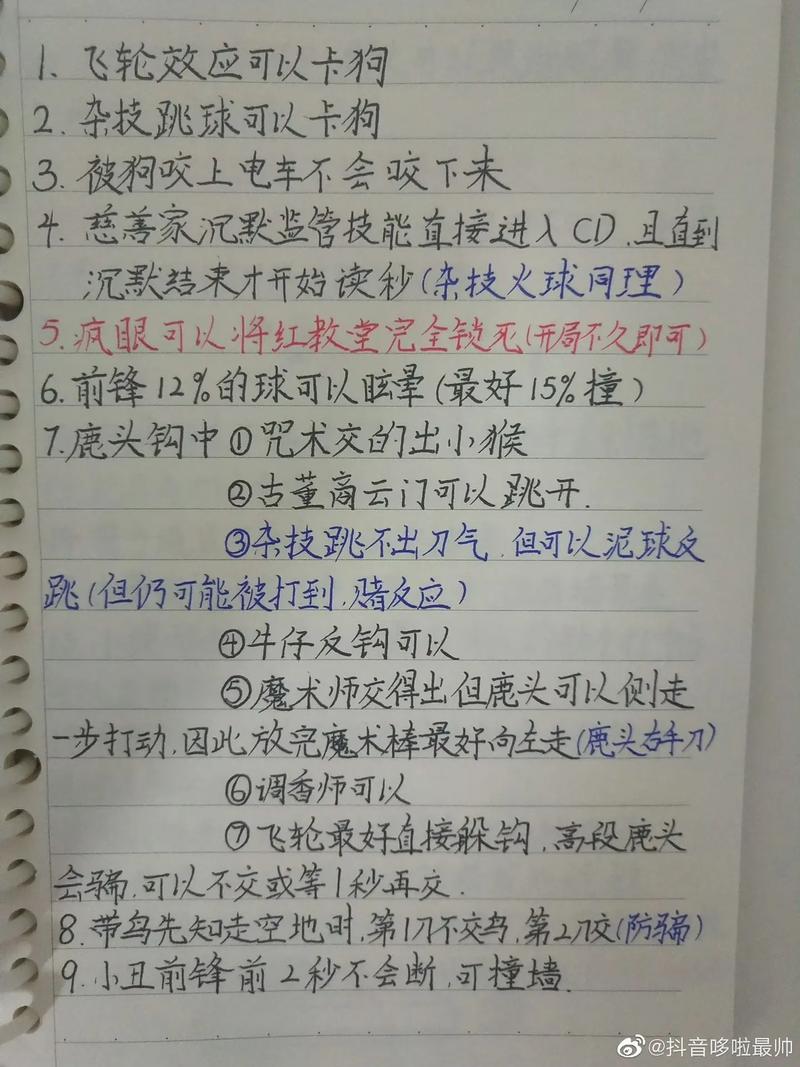 1. 飞轮效应可以卡狗
2. 杂技跳球可以卡狗
3. 被狗咬上电车不会咬下来
4. 慈善家沉默监管技能直接进入CD,且直到
沉默结束才开始读秒(杂技火球同理)
5. 疯眼可以将红教堂完全锁死(开局不久即可)
6. 前锋12%的球可以眩晕(最好15%撞)
7. 鹿头钩中①咒术交的出小猴
②古董商云门可以跳开.
③杂技跳不出刀气,但可以泥球反
跳(但仍可能被打到,赌反应)
④牛仔反钩可以
⑤魔术师交得出但鹿头可以侧走
一步打动,因此放完魔术棒最好向左走(鹿头右手刀)
⑥调香师可以
⑦飞轮最好直接躲钩,高段鹿头
会骗,可以不交或等1秒再交.
8. 带鸟先知走空地时,第1刀不交鸟,第2刀交(防骗)
9. 小丑前锋前2秒不会断,可撞墙.
@抖音哆啦最帅